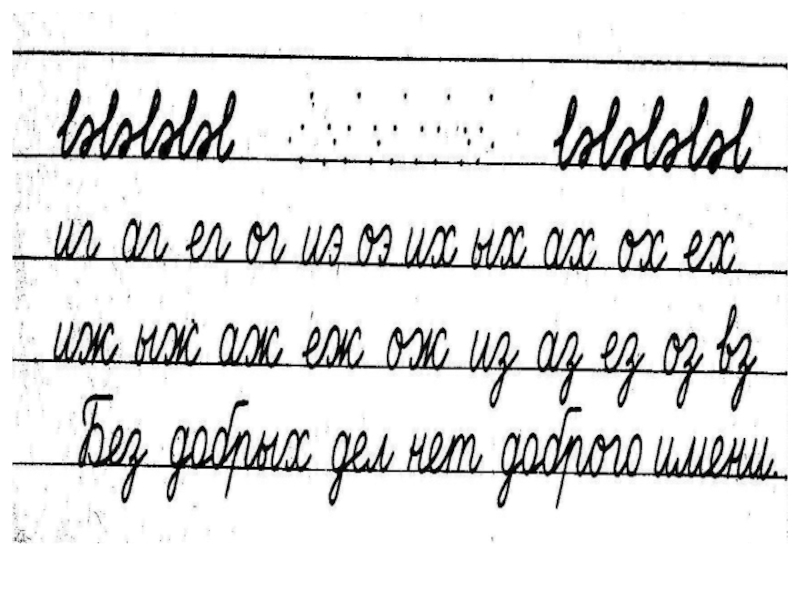 иг аг ег ог иэ оэ их ых ах ох ех
иж ыж аж еж ож из аз ез оз вз
Без добрых дел нет доброго имени.